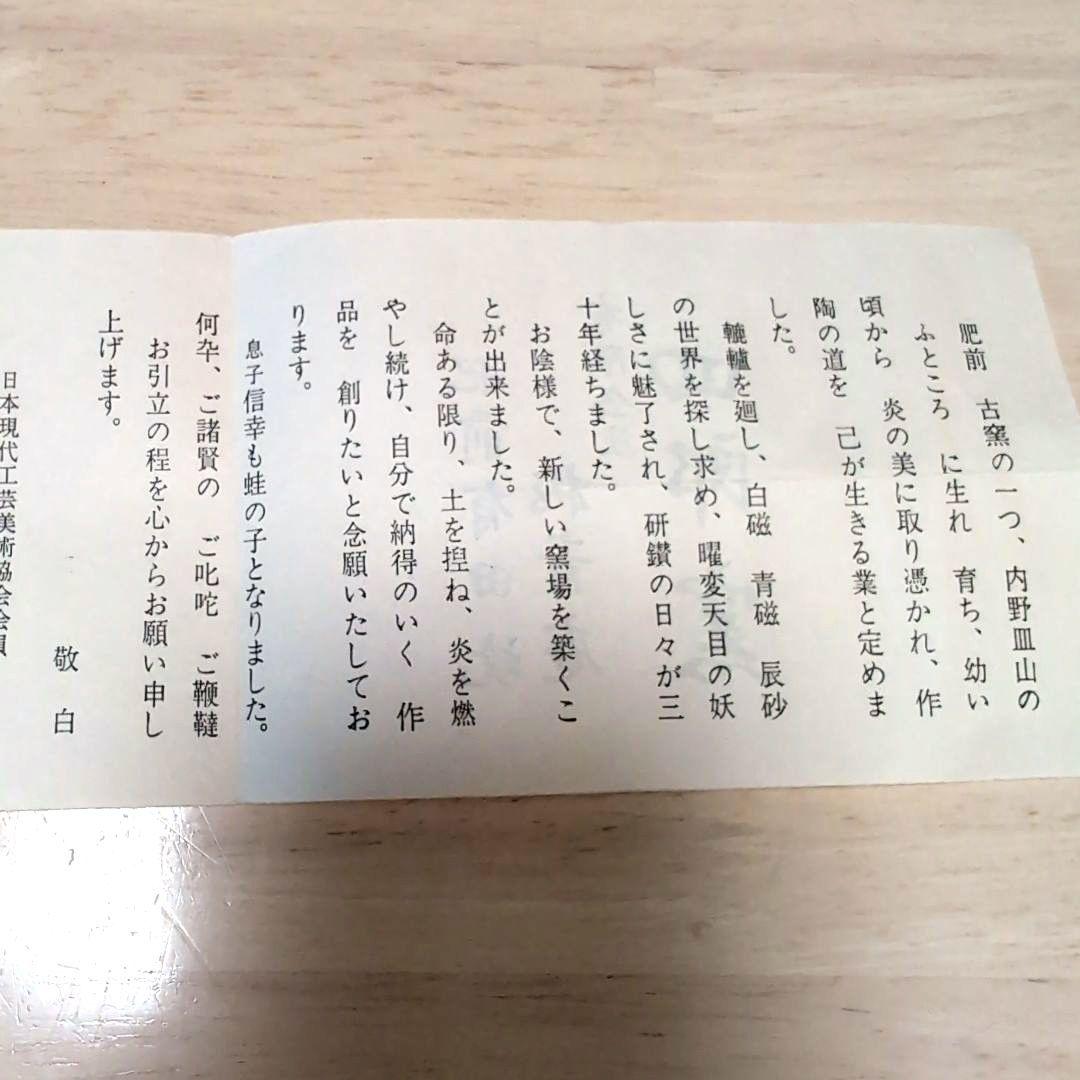 肥前 古窯の一つ、内野皿山の
ふところ に生れ 育ち、幼い
頃から 炎の美に取り憑かれ、作
陶の道を 己が生きる業と定めま
した。
轆轤を廻し、白磁 青磁 辰砂
の世界を探し求め、曜変天目の妖
しさに魅了され、研鑽の日々が三
十年経ちました。
お陰様で、新しい窯場を築くこ
とが出来ました。
命ある限り、土を捏ね、炎を燃
やし続け、自分で納得のいく 作
品を 創りたいと念願いたしてお
ります。
息子信幸も蛙の子となりました。
何卒、ご諸賢の ご叱咤 ご鞭韃
お引立の程を心からお願い申し
上げます。
敬白
日本現代工芸美術協会会員